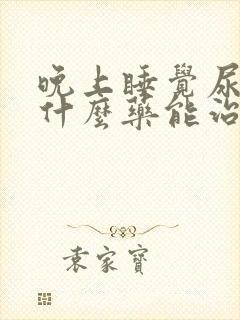 晚上睡覺尿
什麼藥能治
袁家寶